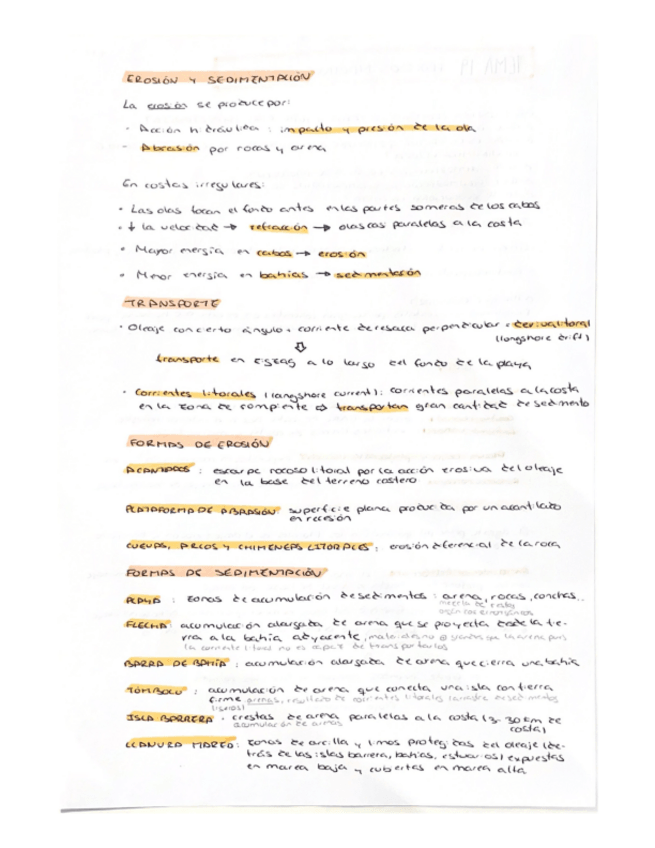 EROSIÓN Y SEDIMENTACIÓN
La erosión se produce por:
- Acción hidráulica: impacto y presión de la ola
- Abrasión por rocas y arena
En costas irregulares:
• Las olas tocan el fondo antes en las partes someras de los cabos
• ↓ la velocidad → refracción → olas casi paralelas a la costa
• Mayor energía en cabos → erosión
• Menor energía en bahías → sedimentación
TRANSPORTE
• Oleaje con cierto ángulo + corriente de resaca perpendicular = deriva litoral
(longshore drift)
⇩
transporte en zigzag a lo largo del fondo de la playa
• Corrientes litorales (longshore current): corrientes paralelas a la costa
en la zona de rompiente ⇨ transportan gran cantidad de sedimento
FORMAS DE EROSIÓN
ACANTILADOS: escarpe rocoso litoral por la acción erosiva del oleaje
en la base del terreno costero
PLATAFORMA DE ABRASIÓN: superficie plana producida por un acantilado
en recesión
CUEVAS, ARCOS Y CHIMENEAS LITORALES: erosión diferencial de la roca
FORMAS DE SEDIMENTACIÓN
PLAYA: zonas de acumulación de sedimentos: arena, rocas, conchas..
mezcla de restos
FLECHA: acumulación alargada de arena que se proyecta desde la tie-
rra a la bahía adyacente,
la corriente litoral no es capaz de transportarlos
BARRA DE BAHÍA: acumulación alargada de arena que cierra una bahía
TÓMBOLO: acumulación de arena que conecta una isla con tierra
firme
ISLA BARRERA: crestas de arena paralelas a la costa (3-30 km de
acumulación de arenas costa)
LLANURA MAREA: zonas de arcilla y limos protegidas del oleaje (de-
trás de las islas barrera, bahías, estuarios) expuestas
en marea baja y cubiertas en marea alta